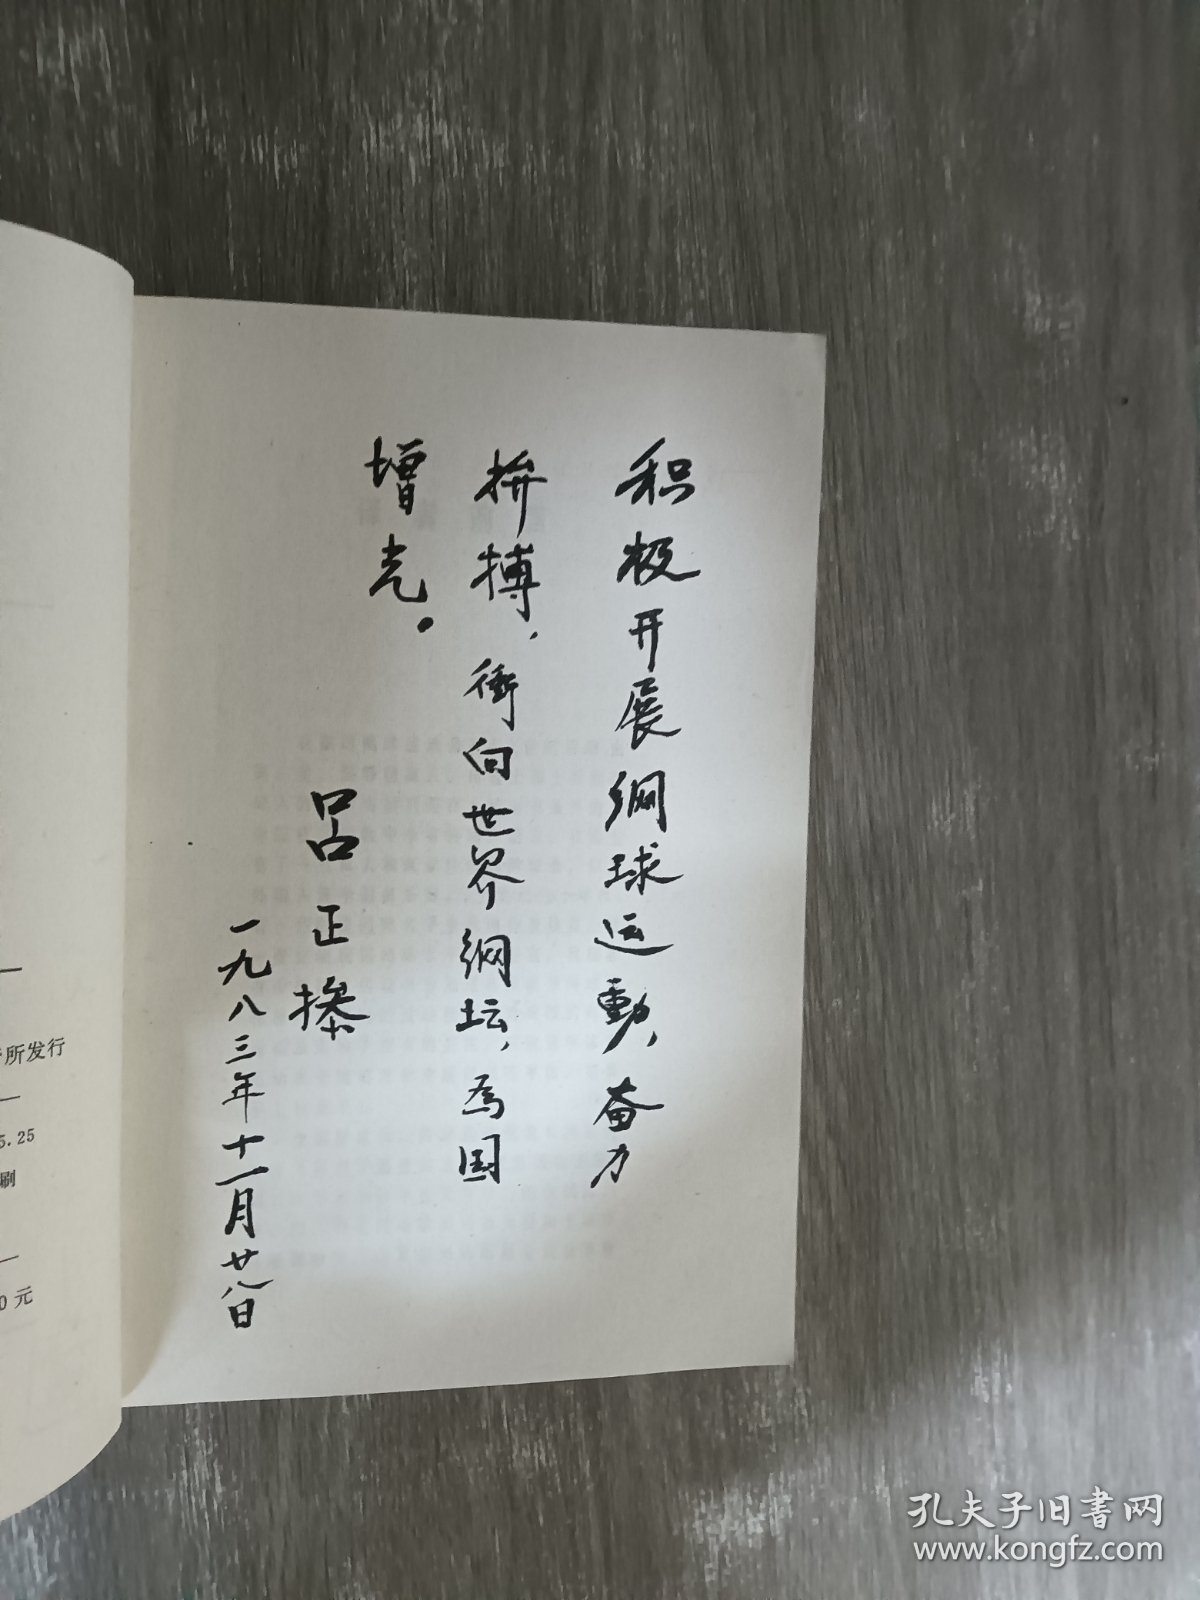 积极开展網球运動，奋力
拚搏，衝向世界網坛，為国
增光。
吕正操
一九八三年十一月廿八日
所发行
5.25
刷
0元
孔夫子旧书网
www.kongfz.com